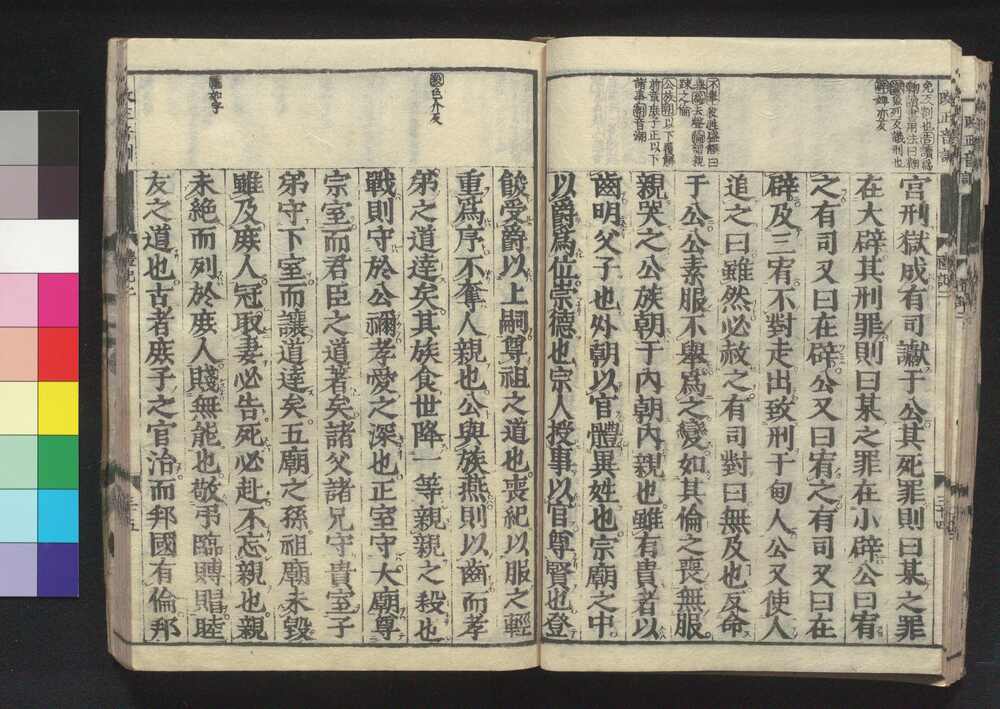 宮刑獄成有司讞于公其死罪則曰某之罪
在大辟其刑罪則曰某之罪在小辟公曰宥
之有司又曰在辟公又曰宥之有司又曰在
辟及三宥不對走出致刑于甸人公又使人
追之曰雖然必赦之有司對曰無及也反命
于公公素服不舉爲之變如其倫之喪無服
親哭之公族朝于內朝內親也雖有貴者以
齒明父子也外朝以官體異姓也宗廟之中
以爵爲位崇德也宗人授事以官尊賢也登
餕受爵以上嗣尊祖之道也喪紀以服之輕
重爲序不奪人親也公與族燕則以齒而孝
弟之道達矣其族食世降一等親親之殺也
戰則守於公禰孝愛之深也正室守大廟尊
宗室而君臣之道著矣諸父諸兄守貴室子
弟守下室而讓道達矣五廟之孫祖廟未毀
雖及庶人冠取妻必告死必赴不忘親也親
未絶而列於庶人賤無能也敬弔臨賻賵睦
友之道也古者庶子之官治而邦國有倫邦